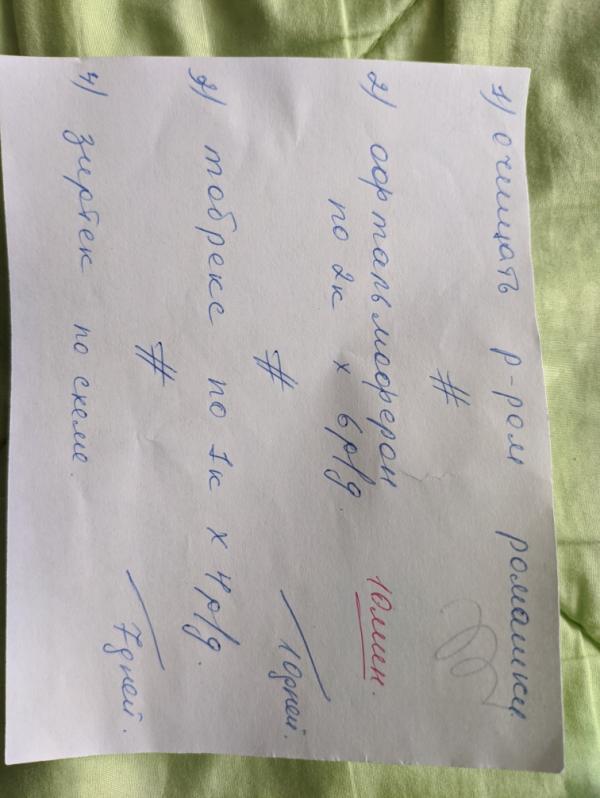 1) очищать р-ром ромашки
#
2) офтальмоферон 10мин.
по 2к х 6р/д
# 10дней.
3) тобрекс по 1к х 4р/д.
# 7дней.
4) зиртек по схеме.